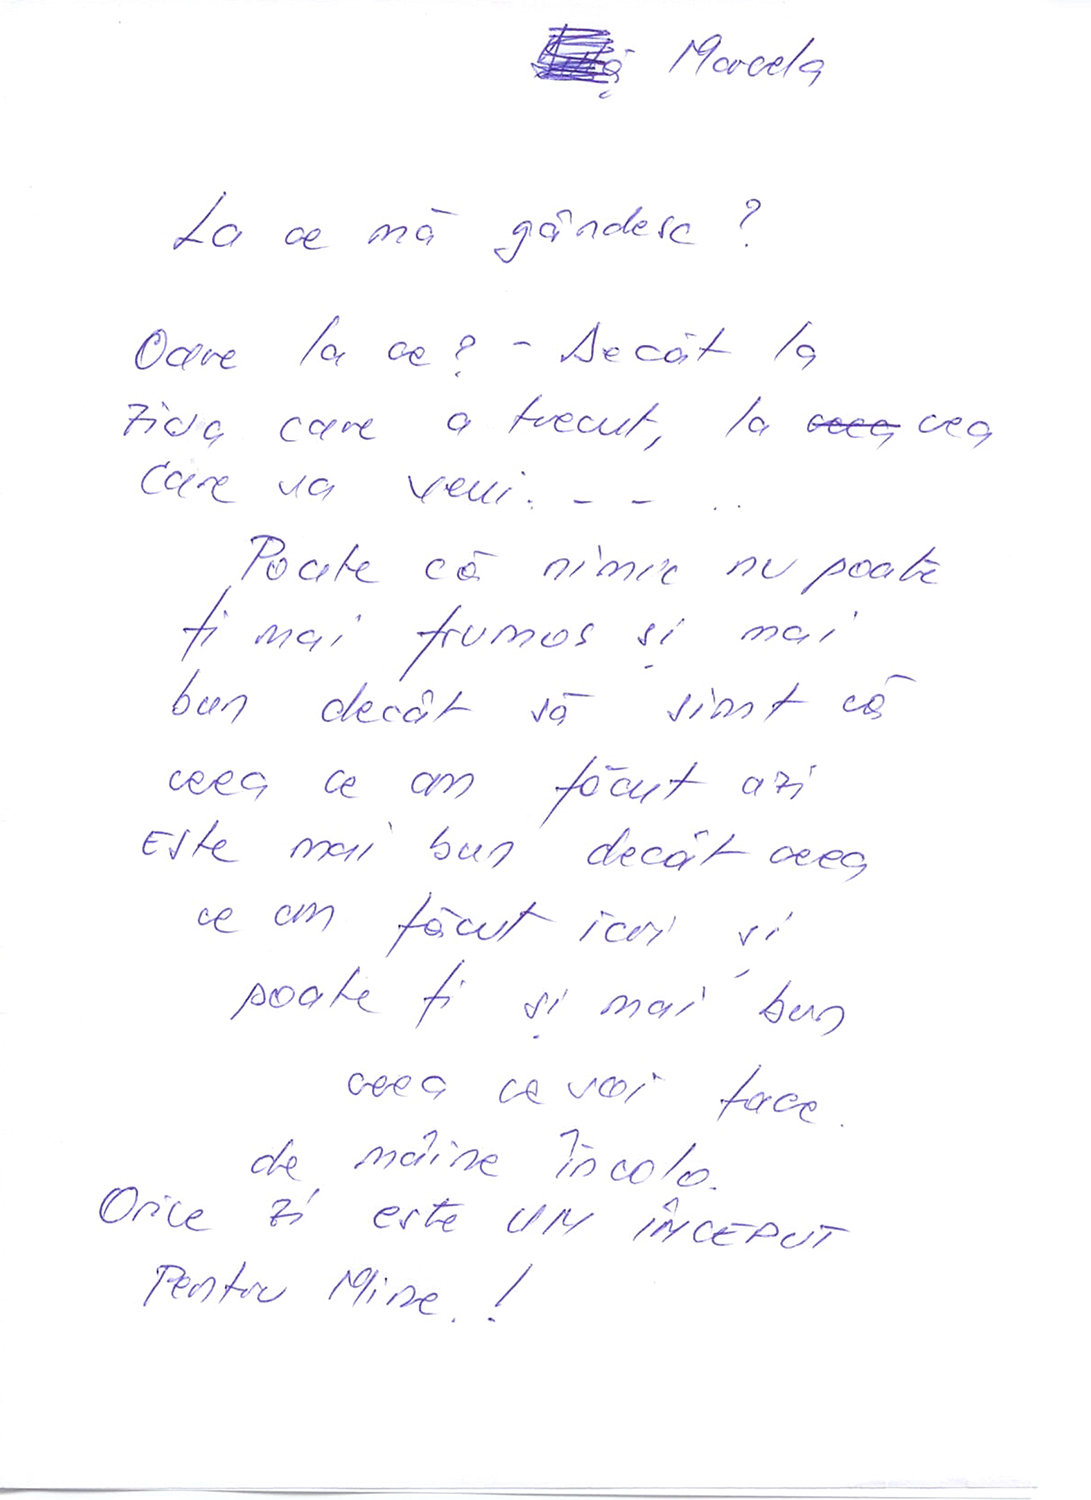 Marcela
La ce mă gândesc ?
Oare la ce ? - Decât la
ziua care a trecut, la ceea cea
care va veni. - - ..
Poate că nimic nu poate
fi mai frumos și mai
bun decât să simt că
ceea ce am făcut azi
Este mai bun decât ceea
ce am făcut ieri și
poate fi și mai bun
ceea ce voi face.
de mâine încolo.
Orice zi este UN ÎNCEPUT
Pentru Mine. !